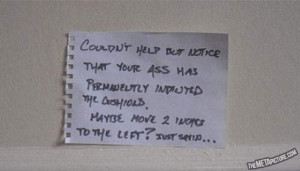 COULDN'T HELP BUT NOTICE
THAT YOUR ASS HAS
PERMANENTLY INDENTED
THE CUSHIONS.
MAYBE MOVE 2 INCHES
TO THE LEFT? JUST SAYIN...
THEMETAPICTURE.COM